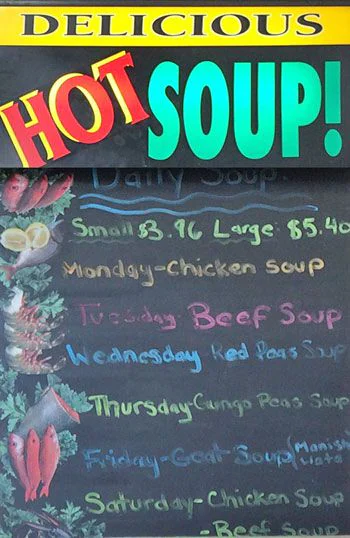 DELICIOUS
HOT SOUP!
Daily Soup:
Small $3.96 Large: $5.40
Monday-Chicken soup
Tuesday-Beef Soup
Wednesday Red Peas Soup
Thursday-Gungo Peas Soup
Friday-Goat Soup (Manish
Wata)
Saturday-Chicken Soup
-Beef Soup